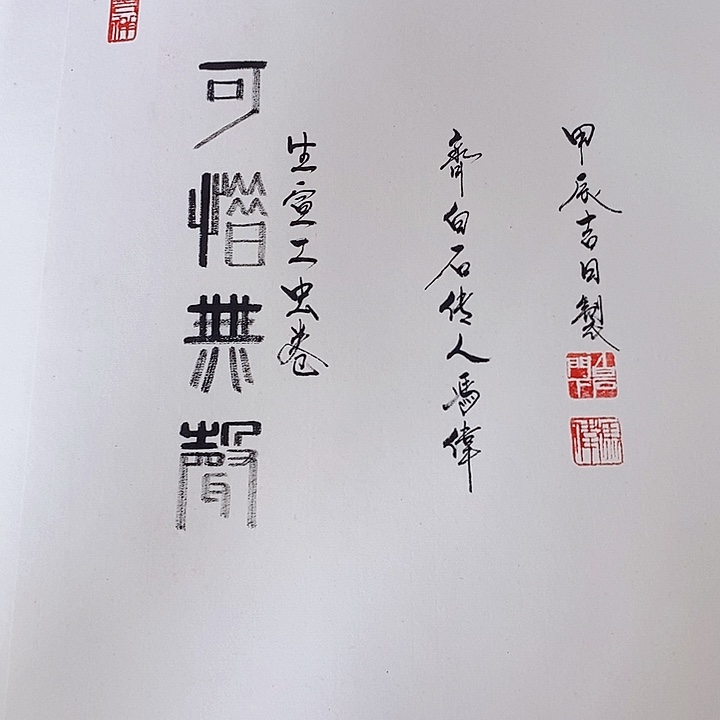 可惜無聲
生宣工虫卷
齊白石传人馮偉
甲辰吉日製